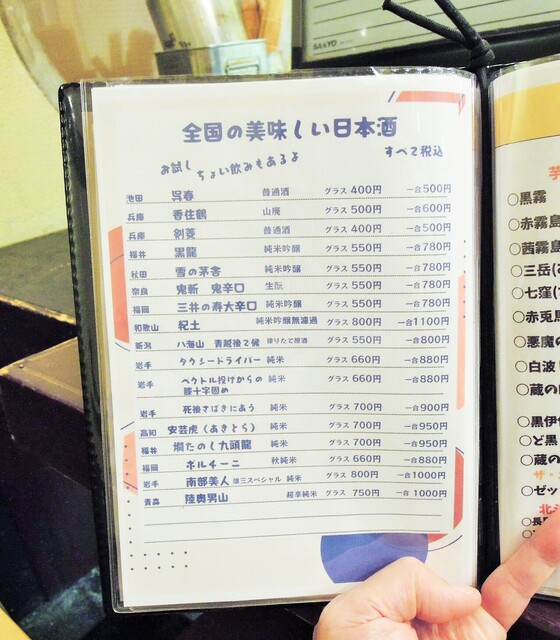 SANYO
全国の美味しい日本酒
お試し ちょい飲みもあるよ すべて税込
池田 呉春 普通酒 グラス 400円 一合500円
兵庫 香住鶴 山廃 グラス 500円 一合600円
兵庫 剣菱 普通酒 グラス 400円 一合500円
福井 黒龍 純米吟醸 グラス 550円 一合780円
秋田 雪の茅舎 純米吟醸 グラス 550円 一合780円
奈良 鬼斬 鬼辛口 生酛 グラス 550円 一合780円
福岡 三井の寿大辛口 純米吟醸 グラス 550円 一合780円
和歌山 紀土 純米吟醸無濾過 グラス 800円 一合1100円
新潟 八海山 青越後で候 搾りたて原酒 グラス 550円 一合800円
岩手 タクシードライバー 純米 グラス 660円 一合880円
ベクトル投げからの
岩手 膝十字固め 純米 グラス 660円 一合880円
岩手 死後さばきにあう 純米 グラス 700円 一合900円
高知 安芸虎（あきとら） 純米 グラス 700円 一合950円
福井 燗たのし九頭龍 純米 グラス 700円 一合950円
福岡 ポルチーニ 秋純米 グラス 660円 一合880円
岩手 南部美人 雄三スペシャル 純米 グラス 800円 一合1000円
青森 陸奥男山 超辛純米 グラス 750円 一合 1000円
芋
○黒霧
○赤霧島
○茜霧島
○三岳(
○七窪(
○赤兎馬
○悪魔の
○白波
○蔵の
○黒伊
○ど黒
○蔵の
ザ・
○ゼッ
北